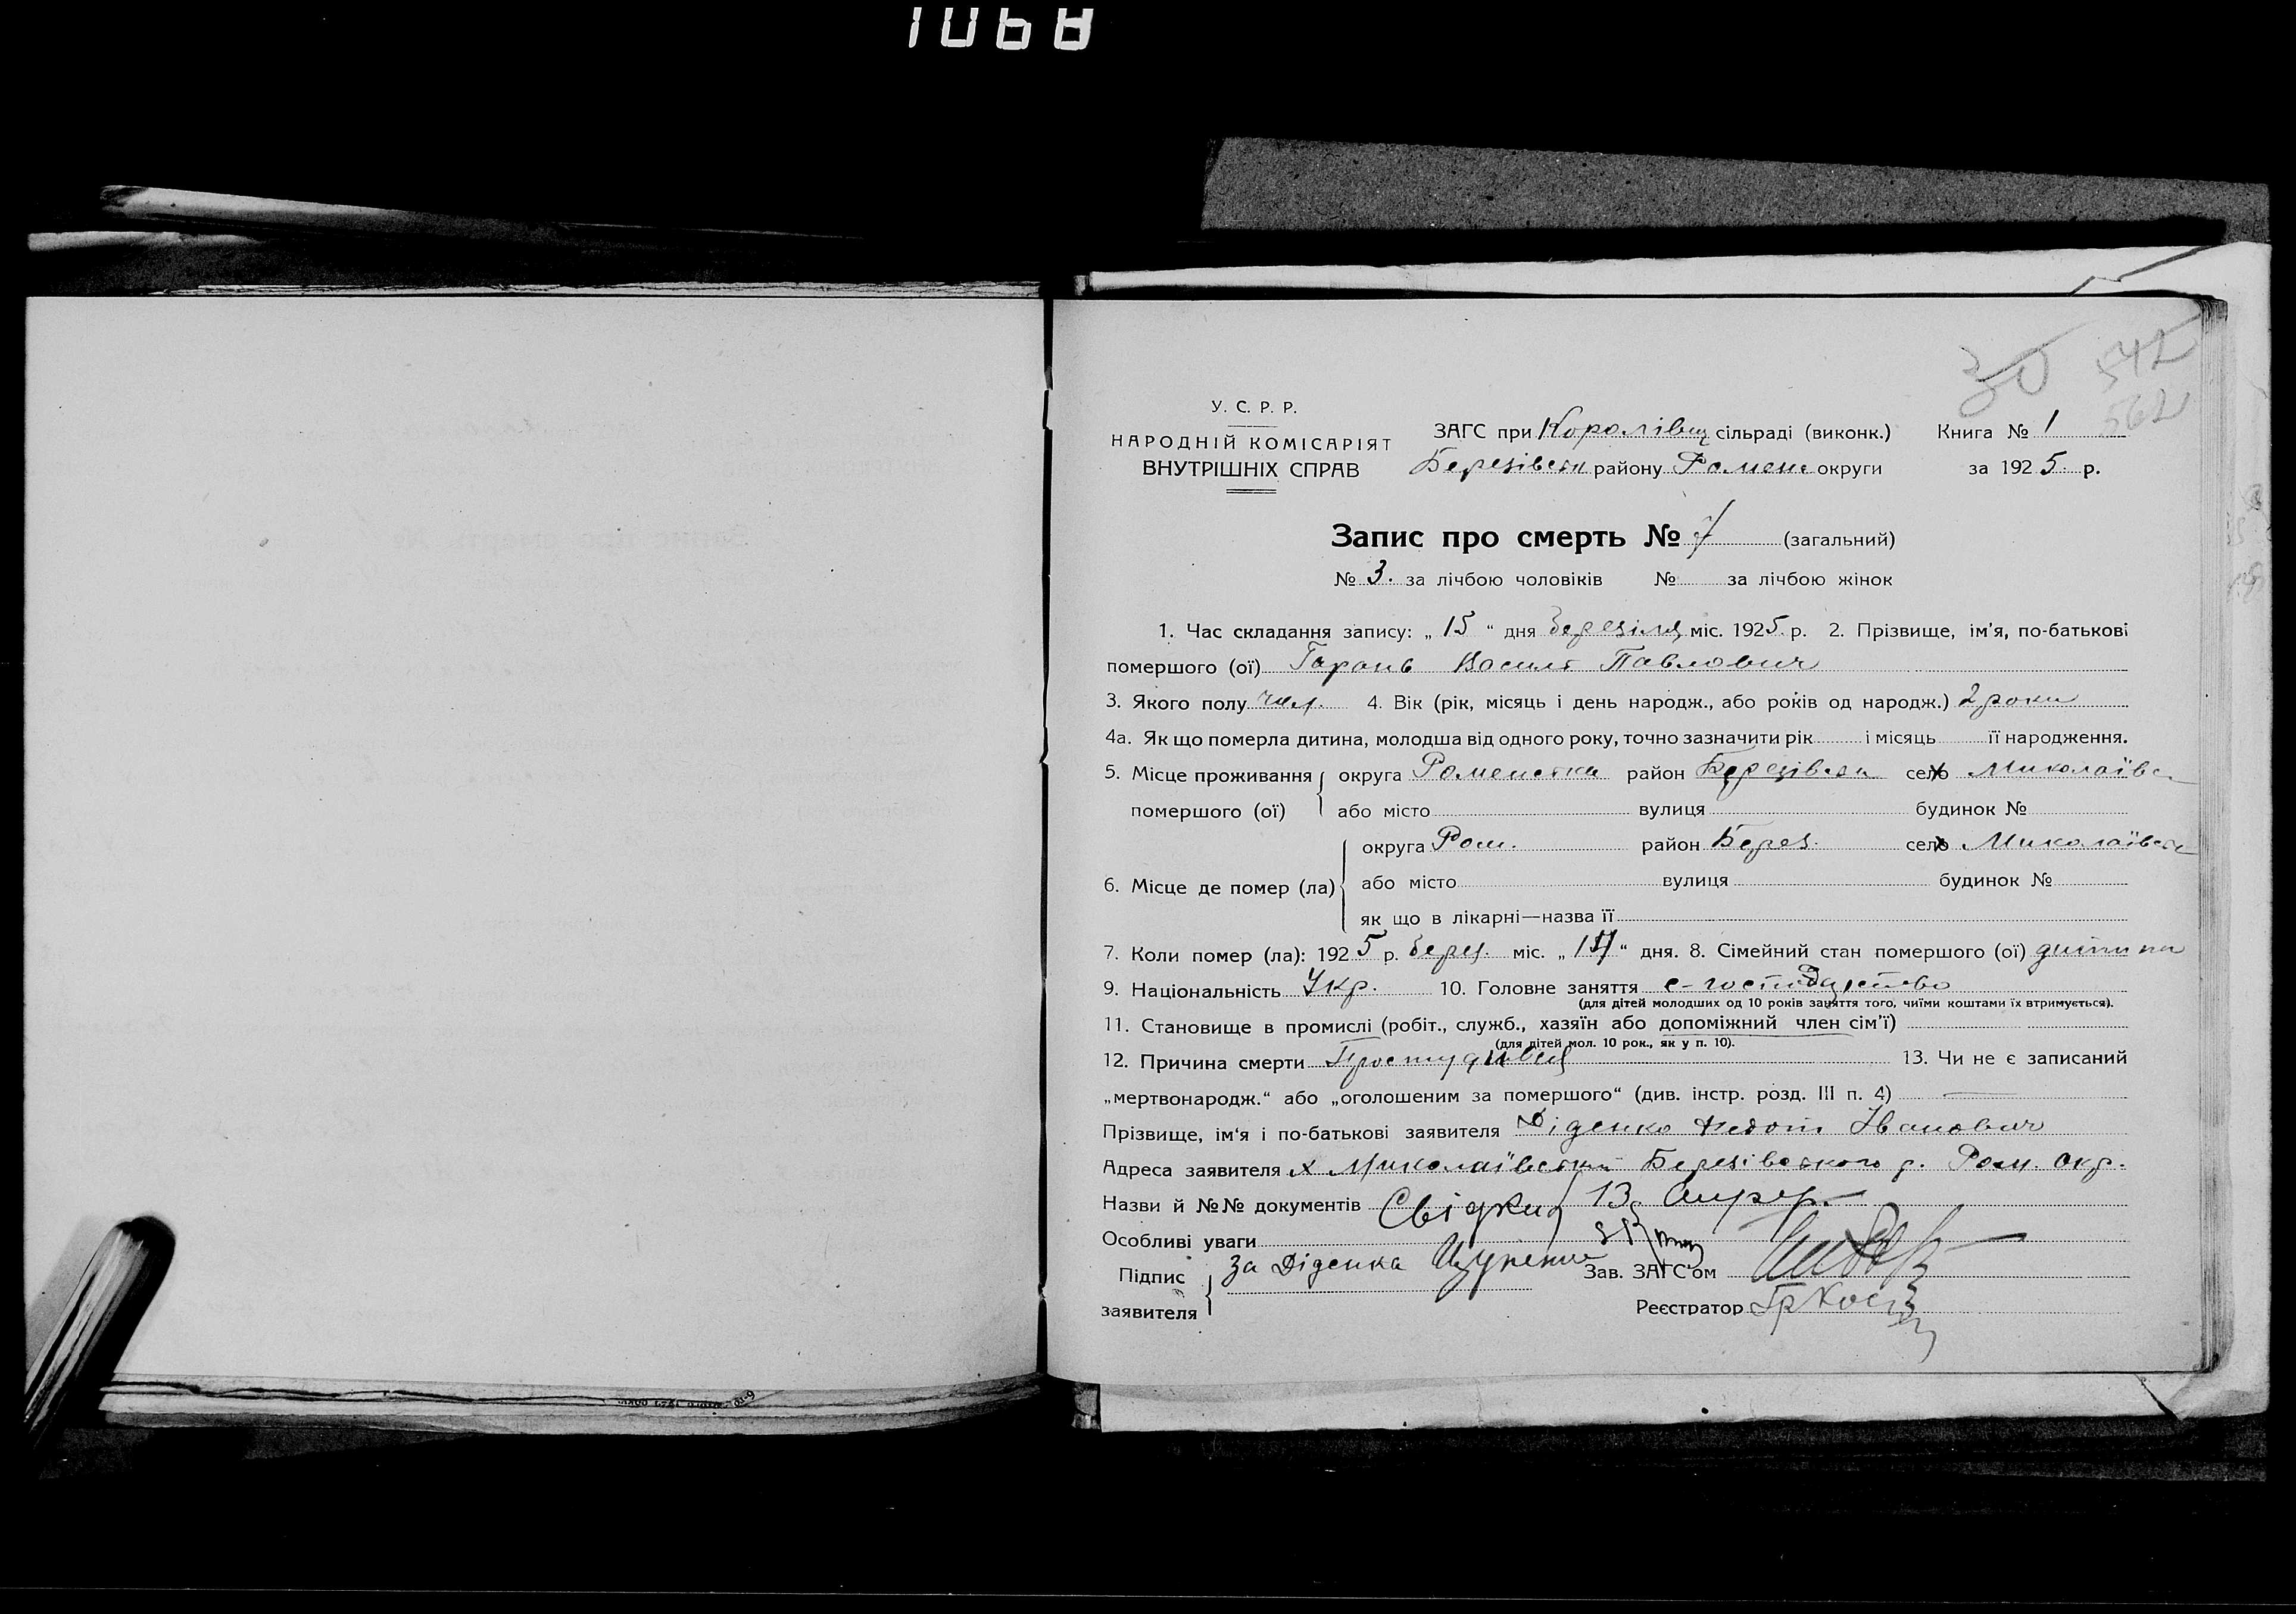 1068
30 542
562
У. С. Р. Р.
НАРОДНІЙ КОМІСАРІЯТ
ВНУТРІШНІХ СПРАВ
ЗАГС при Королівщ сільраді (виконк.) Книга № 1
Березівськ району Роменс округи за 1925 р.
Запис про смерть № 7 (загальний)
№ 3. за лічбою чоловіків № за лічбою жінок
1. Час складання запису: „ 15 “ дня березіля міс. 1925 р. 2. Прізвище, ім'я, по-батькові
помершого (ої) Гарань Василь Павлович
3. Якого полу чол. 4. Вік (рік, місяць і день народж., або років од народж.) 2 роки
4а. Як що померла дитина, молодша від одного року, точно зазначити рік і місяць її народження.
5. Місце проживання помершого (ої) округа Роменська район Березівськ село х Миколаївськ
або місто вулиця будинок №
6. Місце де помер (ла) округа Ром. район Берез. село х Миколаївськ
або місто вулиця будинок №
як що в лікарні—назва її
7. Коли помер (ла): 1925 р. берез. міс. „ “ дня. 8. Сімейний стан помершого (ої) дитина
9. Національність Укр. 10. Головне заняття с-господарство
(для дітей молодших од 10 років заняття того, чиїми коштами їх втримується).
11. Становище в промислі (робіт., служб., хазяїн або допоміжний член сім'ї)
(для дітей мол. 10 рок., як у п. 10).
12. Причина смерти Простудився 13. Чи не є записаний
„мертвонародж.“ або „оголошеним за помершого“ (див. інстр. розд. III п. 4) —
Прізвище, ім'я і по-батькові заявителя Діденко Федот Іванович
Адреса заявителя х Миколаївський Березівського р. Ром. окр.
Назви й №№ документів Свідки
Особливі уваги
Підпис заявителя За Діденка Цуренко Зав. ЗАГС'ом
Реєстратор